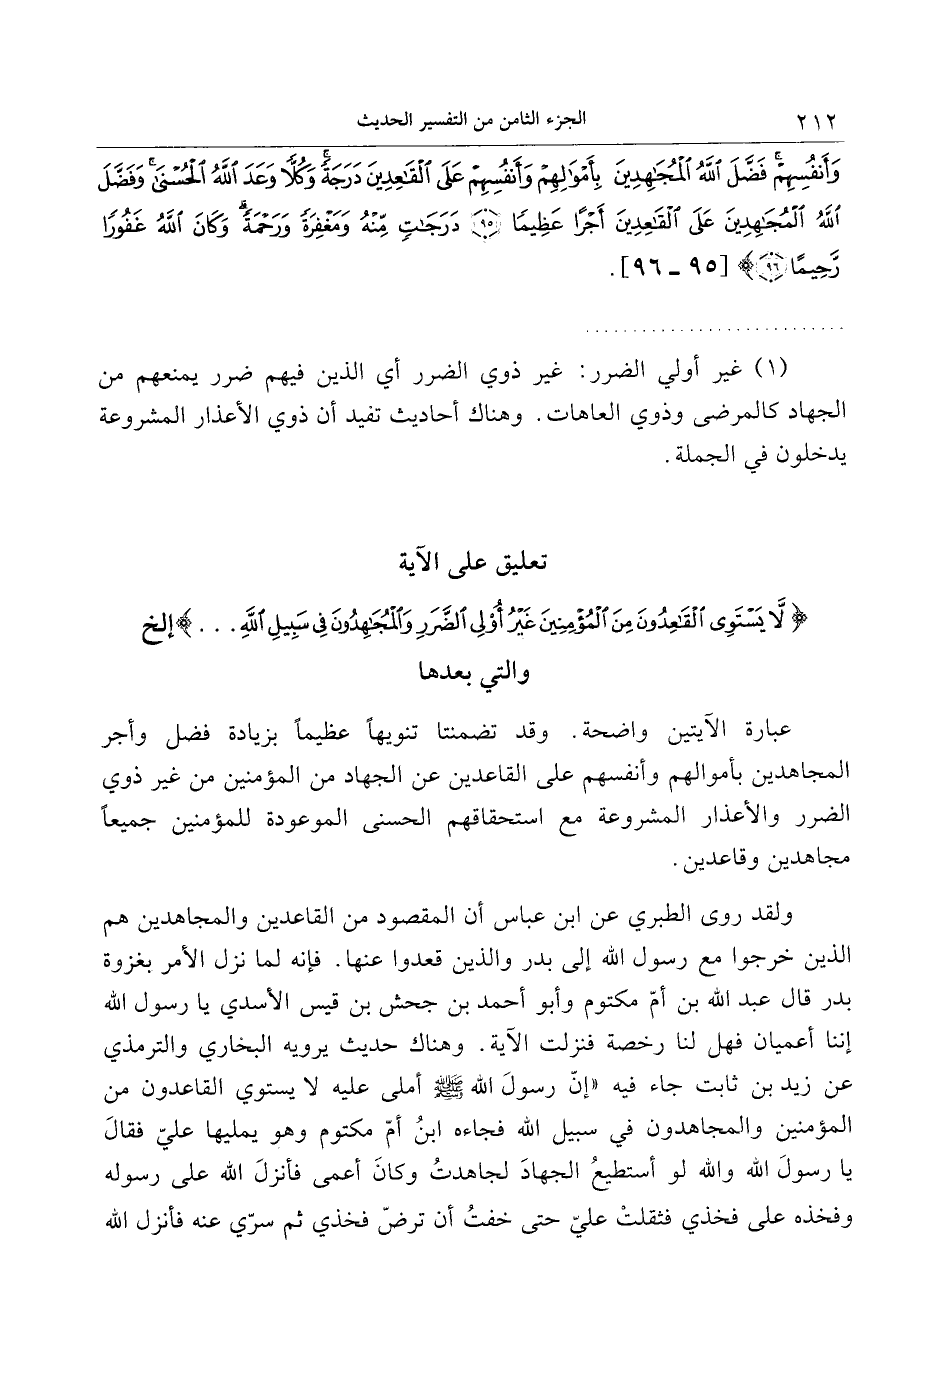 ٢١٢ الجزء الثامن من التفسير الحديث
وَأَنفُسِهِمْ ۚ فَضَّلَ ٱللَّهُ ٱلْمُجَٰهِدِينَ بِأَمْوَٰلِهِمْ وَأَنفُسِهِمْ عَلَى ٱلْقَٰعِدِينَ دَرَجَةً ۚ وَكُلًّا وَعَدَ ٱللَّهُ ٱلْحُسْنَىٰ ۚ وَفَضَّلَ
ٱللَّهُ ٱلْمُجَٰهِدِينَ عَلَى ٱلْقَٰعِدِينَ أَجْرًا عَظِيمًا ٩٥ دَرَجَٰتٍ مِّنْهُ وَمَغْفِرَةً وَرَحْمَةً ۗ وَكَانَ ٱللَّهُ غَفُورًا
رَّحِيمًا ٩٦﴾ [٩٥ ـ ٩٦].
(١) غير أولي الضرر: غير ذوي الضرر أي الذين فيهم ضرر يمنعهم من
الجهاد كالمرضى وذوي العاهات. وهناك أحاديث تفيد أن ذوي الأعذار المشروعة
يدخلون في الجملة.
تعليق على الآية
﴿لَّا يَسْتَوِى ٱلْقَٰعِدُونَ مِنَ ٱلْمُؤْمِنِينَ غَيْرُ أُو۟لِى ٱلضَّرَرِ وَٱلْمُجَٰهِدُونَ فِى سَبِيلِ ٱللَّهِ . . . ﴾ إلخ
والتي بعدها
عبارة الآيتين واضحة. وقد تضمنتا تنويهاً عظيماً بزيادة فضل وأجر
المجاهدين بأموالهم وأنفسهم على القاعدين عن الجهاد من المؤمنين من غير ذوي
الضرر والأعذار المشروعة مع استحقاقهم الحسنى الموعودة للمؤمنين جميعاً
مجاهدين وقاعدين.
ولقد روى الطبري عن ابن عباس أن المقصود من القاعدين والمجاهدين هم
الذين خرجوا مع رسول الله إلى بدر والذين قعدوا عنها. فإنه لما نزل الأمر بغزوة
بدر قال عبد الله بن أمّ مكتوم وأبو أحمد بن جحش بن قيس الأسدي يا رسول الله
إننا أعميان فهل لنا رخصة فنزلت الآية. وهناك حديث يرويه البخاري والترمذي
عن زيد بن ثابت جاء فيه «إنّ رسولَ الله ﷺ أملى عليه لا يستوي القاعدون من
المؤمنين والمجاهدون في سبيل الله فجاءه ابنُ أمّ مكتوم وهو يمليها عليّ فقالَ
يا رسولَ الله والله لو أستطيعُ الجهادَ لجاهدتُ وكانَ أعمى فأنزلَ الله على رسوله
وفخذه على فخذي فثقلتْ عليّ حتى خفتُ أن ترضّ فخذي ثم سرّي عنه فأنزل الله